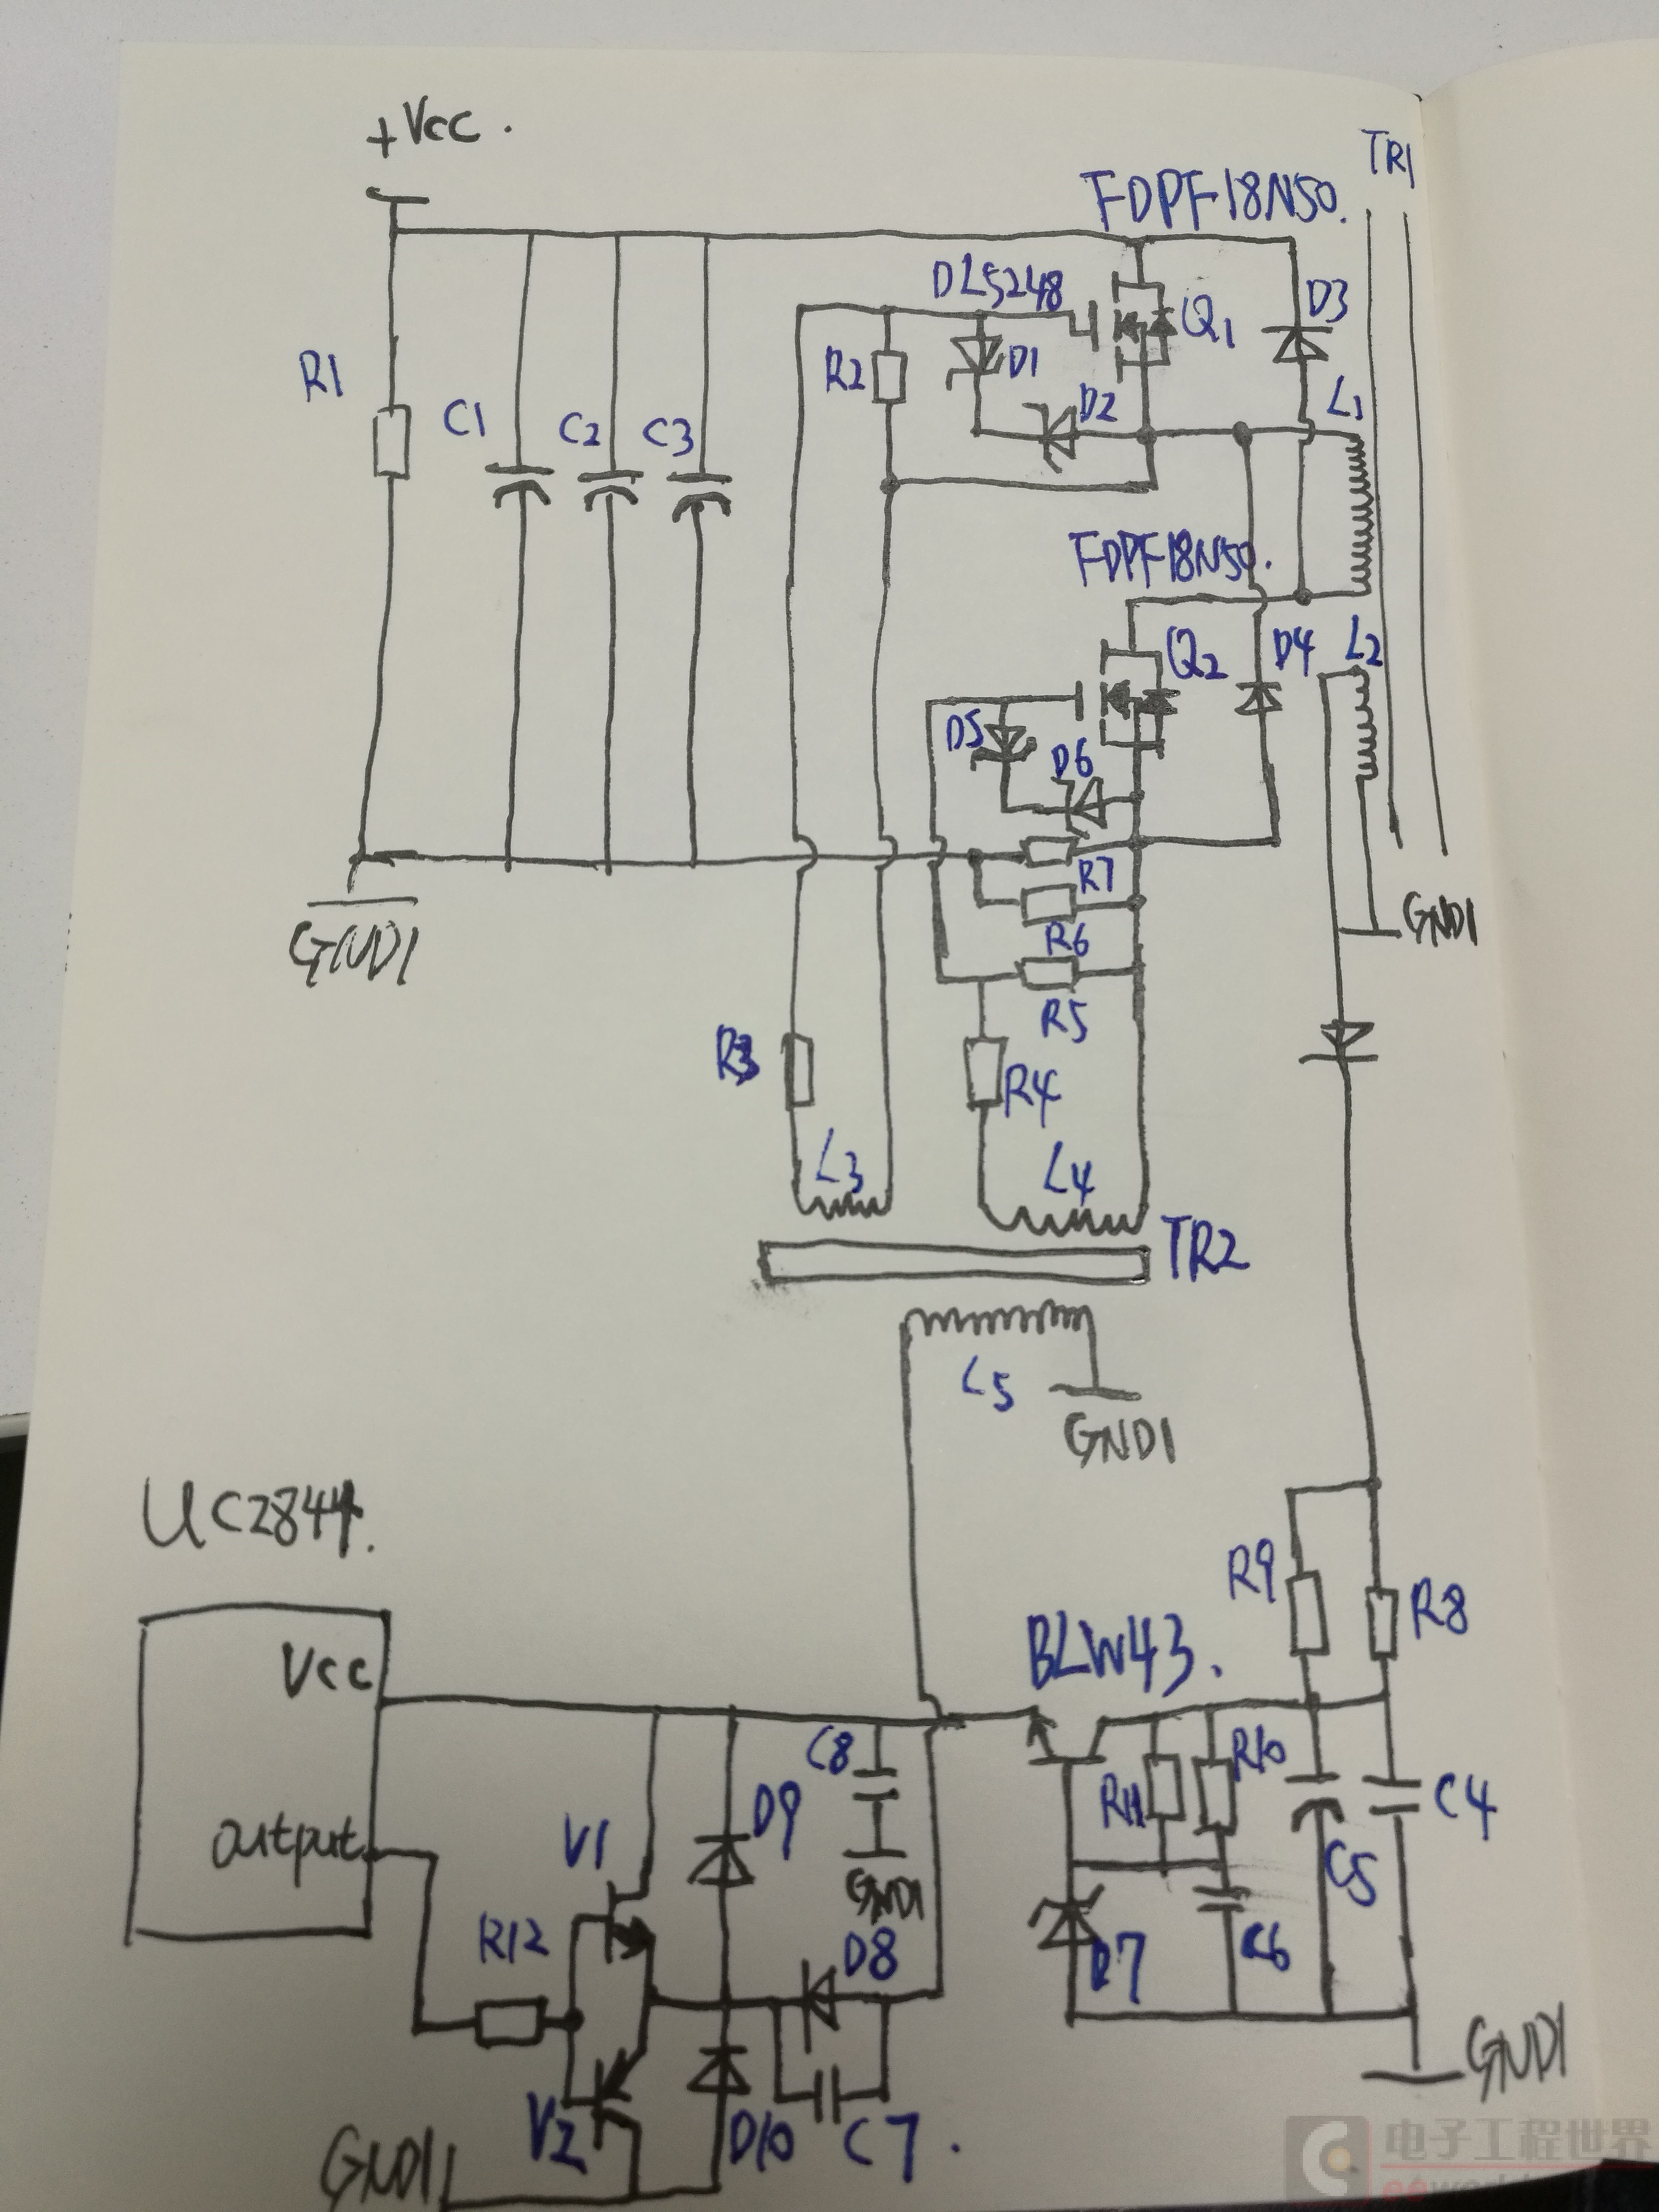 +Vcc.
TR1
FDPF18N50.
DL5248
Q1
D3
R1
R2
D1
D2
L1
C1
C2
C3
FDPF18N50.
Q2
D4
L2
D5
D6
R7
GND1
GND1
R6
R5
R3
R4
L3
L4
TR2
L5
GND1
UC2844.
R9
R8
BLW43.
Vcc
C8
R10
R11
D9
C4
output
V1
C5
GND1
R12
D8
D7
C6
GND1
V2
D10
C7.
GND1
电子工程世界